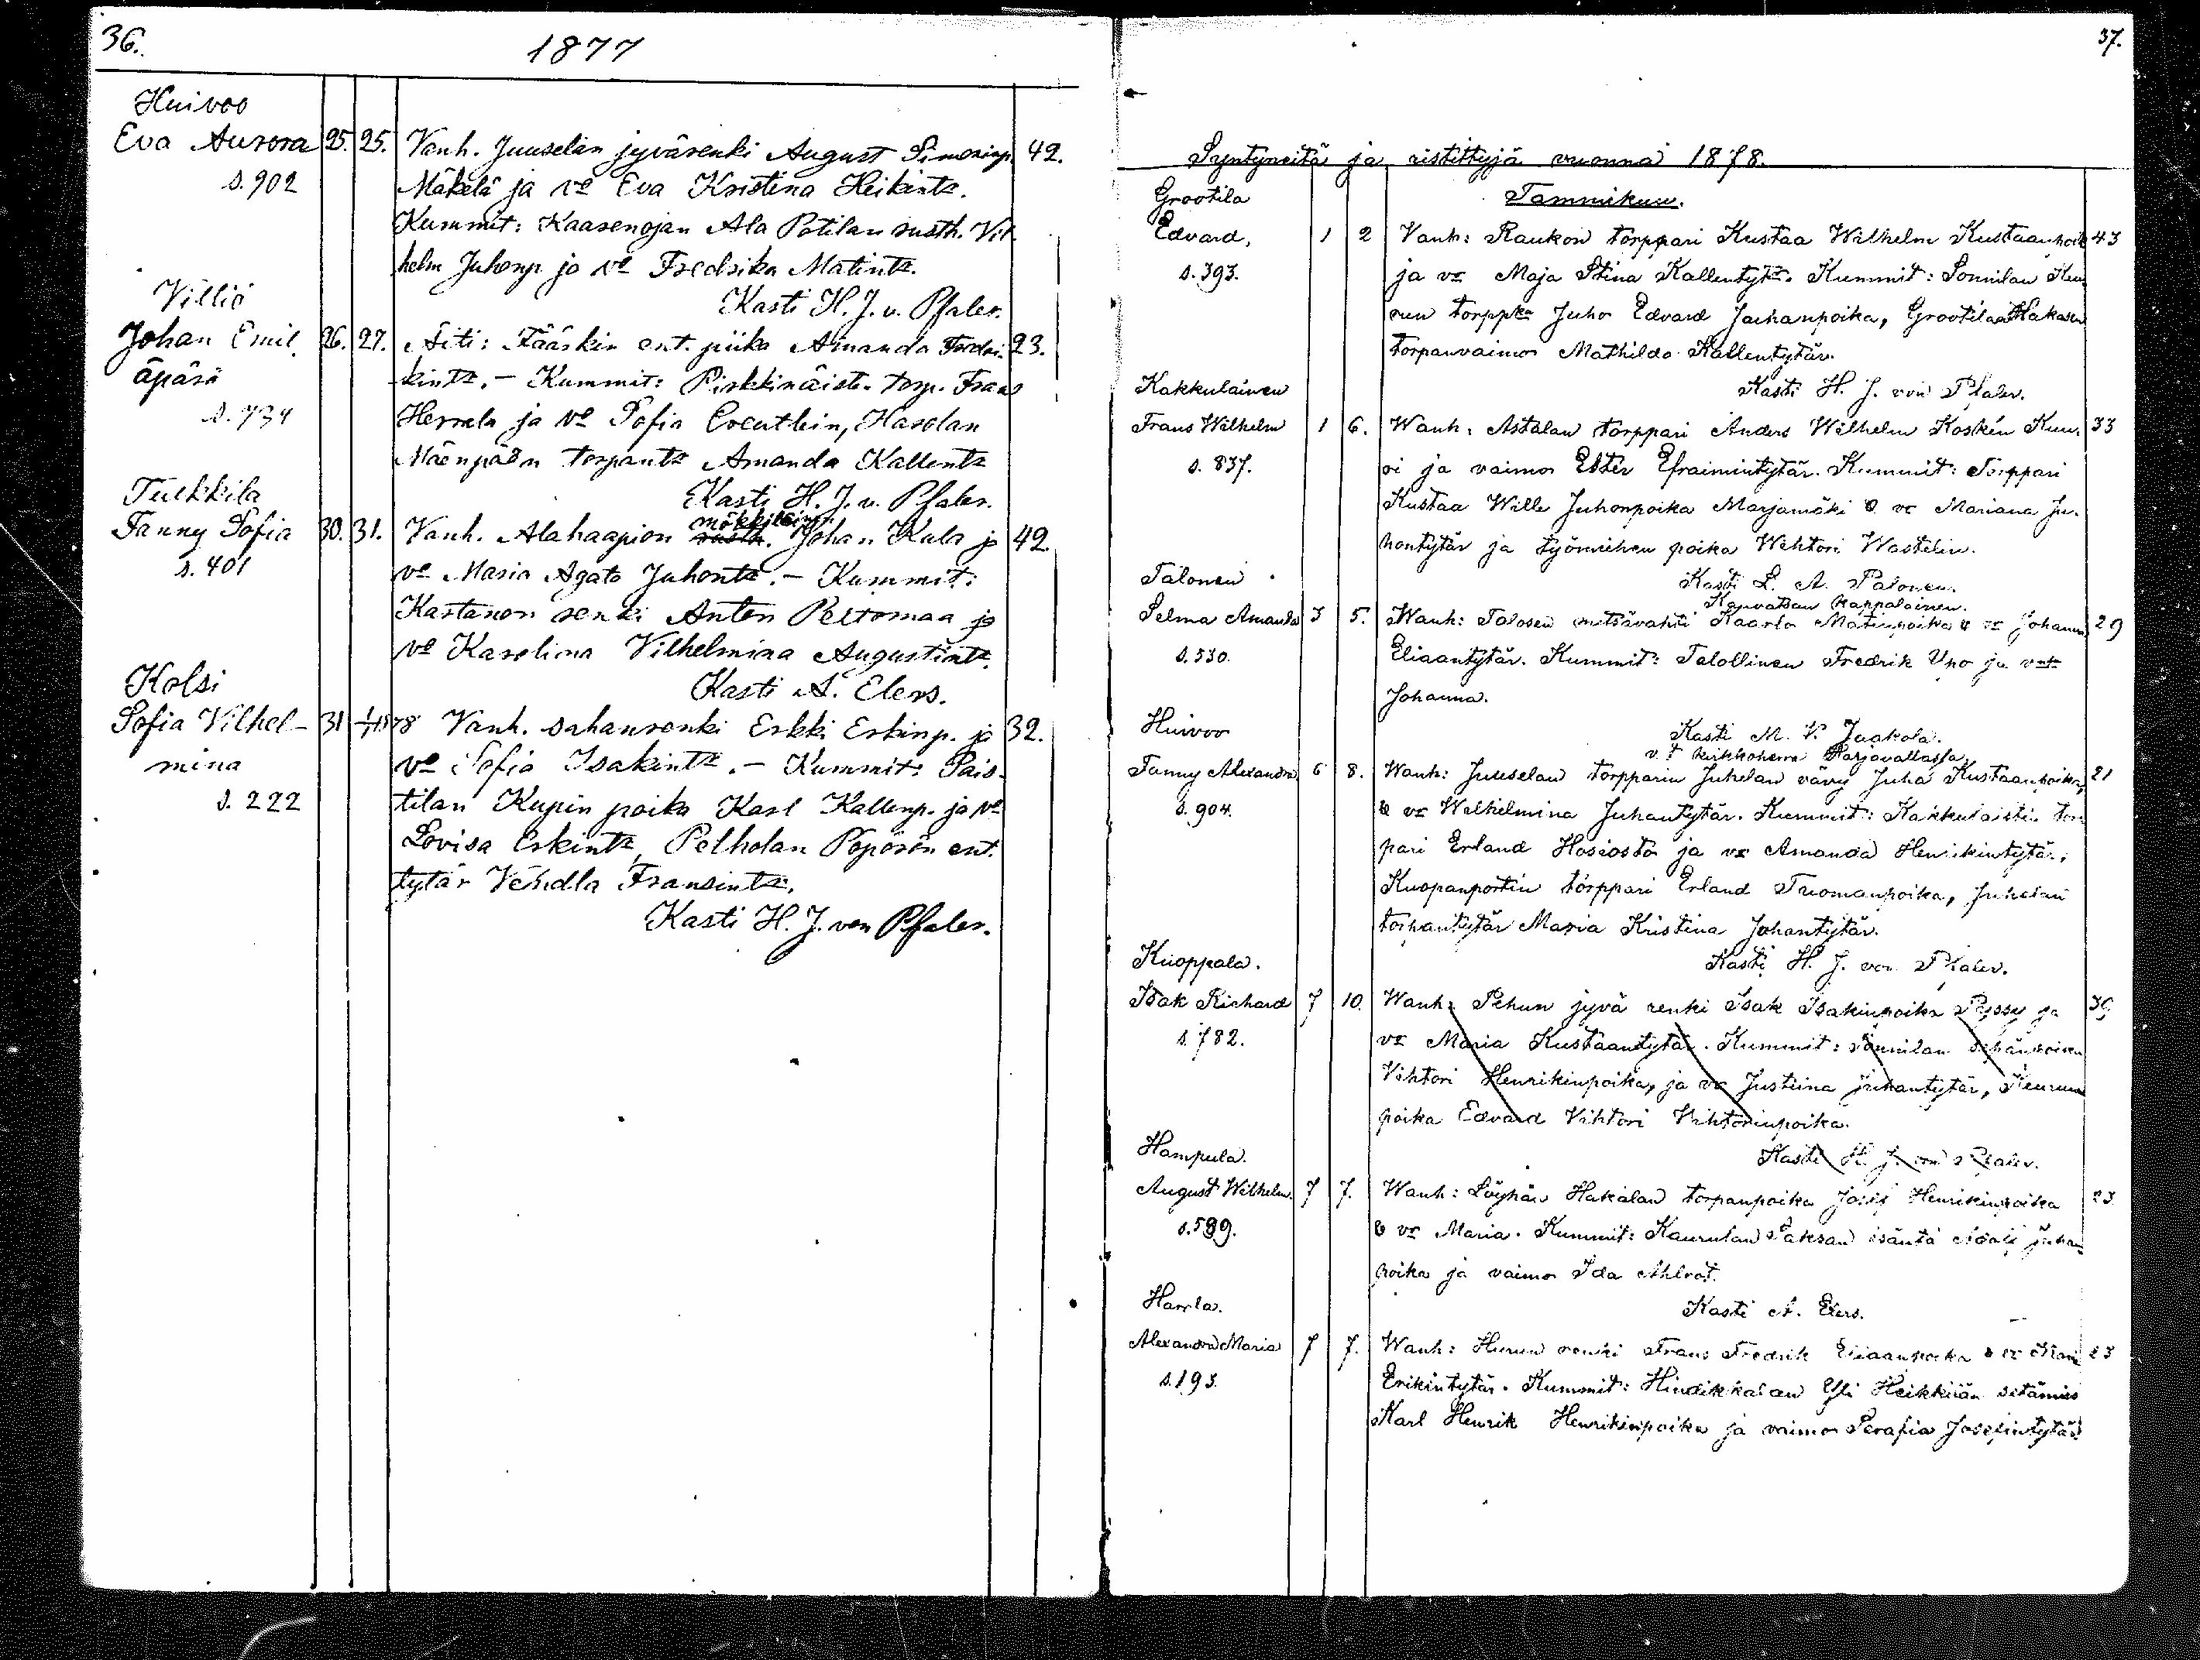 36.
1877
Huivoo
Eva Aurora 25. 25. Vanh. Juuselan jyvärenki August Simoninp. 42.
s. 902 Mäkelä ja vo Eva Kristina Heikintr.
Kummit: Kaasenojan Ala Potilan rusth. Vil-
helm Juhonp. ja vo Fredrika Matintr.
Kasti H. J. v. Pfaler.
Villiö
Johan Emil 26. 27. Äiti: Fääskin ent. piika Amanda Fredri- 23.
äpärä kintr. – Kummit: Pirkkinäist. torp. Frans
s. 734 Herrala ja vo Sofia Eventhin, Hasolan
Mäenpään torpantr Amanda Kallentr
Kasti H. J. v. Pfaler.
Tulkkila
Fanny Sofia 30. 31. Vanh. Alahaapion mökkiläinen Johan Kula ja 42.
s. 401 vo Maria Agata Juhontr. – Kummit:
Kastanon renki Anton Peltomaa ja
vo Karolina Vilhelmina Augustintr.
Kasti A. Elers.
Kolsi
Sofia Vilhel- 31 1/1 1878 Vanh. sahanrenki Erkki Erkinp. ja 32.
mina vo Sofia Isakintr. – Kummit: Pais-
s. 222 tilan Kupin poika Karl Kallenp. ja vo
Lovisa Erkintr, Pelholan Pöpörön ent.
tytär Vendla Fransintr.
Kasti H. J. von Pfaler.
37.
Syntyneitä ja ristittyjä vuonna 1878.
Tammikuu.
Grootila
Edvard, 1 2 Vanh: Raukon torppari Kustaa Wilhelm Kustaanpoika 43
s. 393. ja vo Maja Stina Kallentytr. Kummit: Sonnilan Keu-
run torppri Juho Edvard Juhanpoika, Grootilan Hakasen
torpanvaimo Mathilda Kallentytär.
Kasti H. J. von Pfaler.
Kakkulainen
Frans Wilhelm 1 6. Wanh: Astalan torppari Anders Wilhelm Koskén Kuu- 33
s. 837. si ja vaimo Ester Efraimintytär. Kummit: Torppari
Kustaa Wille Juhonpoika Marjamäki & vo Mariana Ju-
hontytär ja työmiehen poika Wihtori Wastelin.
Kasti L. A. Palonen.
Kauvatsan kappalainen.
Talonen
Selma Amanda 3 5. Wanh: Talosen metsävahti Kaarlo Matinpoika & vo Johanna 29
s. 530. Eliaantytär. Kummit: Talollinen Fredrik Uno ja vmo
Johanna.
Kasti M. V. Jaakola.
v. t. kirkkoherra Harjavallassa
Huivoo
Fanny Alexandra 6 8. Wanh: Juuselan torpparin Juhelan vävy Juha Kustaanpoika 21
s. 904. & vo Wilhelmina Juhantytär. Kummit: Kakkulaistn. torp
pari Erland Hosiosto ja vo Amanda Henrikintytär,
Kuopanportin torppari Erland Tuomanpoika, Juhelan
torpantytär Maria Kristina Johantytär.
Kasti H. J. von Pfaler.
Kuoppala.
Isak Richard 7 10. Wanh: Pehun jyvä renki Isak Isakinpoika Pyssy ja 36
s. 782. vo Maria Kustaantytär. Kummit: Sonnilan
Vihtori Henrikinpoika, ja vo Justiina Juhantytär, Keurun
poika Edvard Vihtori Vihtorinpoika.
Kasti H. J. von Pfaler.
Hampula.
August Wilhelm. 7 7. Wanh: Löyhän Hakalan torpanpoika Josef Henrikinpoika 23
s. 589. & vo Maria. Kummit: Kaurulan Paksan isäntä Adolf Juhan
poika ja vaimo Ida Ahlrot.
Kasti A. Elers.
Harola.
Alexandra Maria 7 7. Wanh: Hurun renki Frans Fredrik Eliaanpoika & vo Maria 23
s. 193. Erikintytär. Kummit: Hindikkalan Yli Heikkilän setämies
Karl Henrik Henrikinpoika ja vaimo Serafia Josefintytär